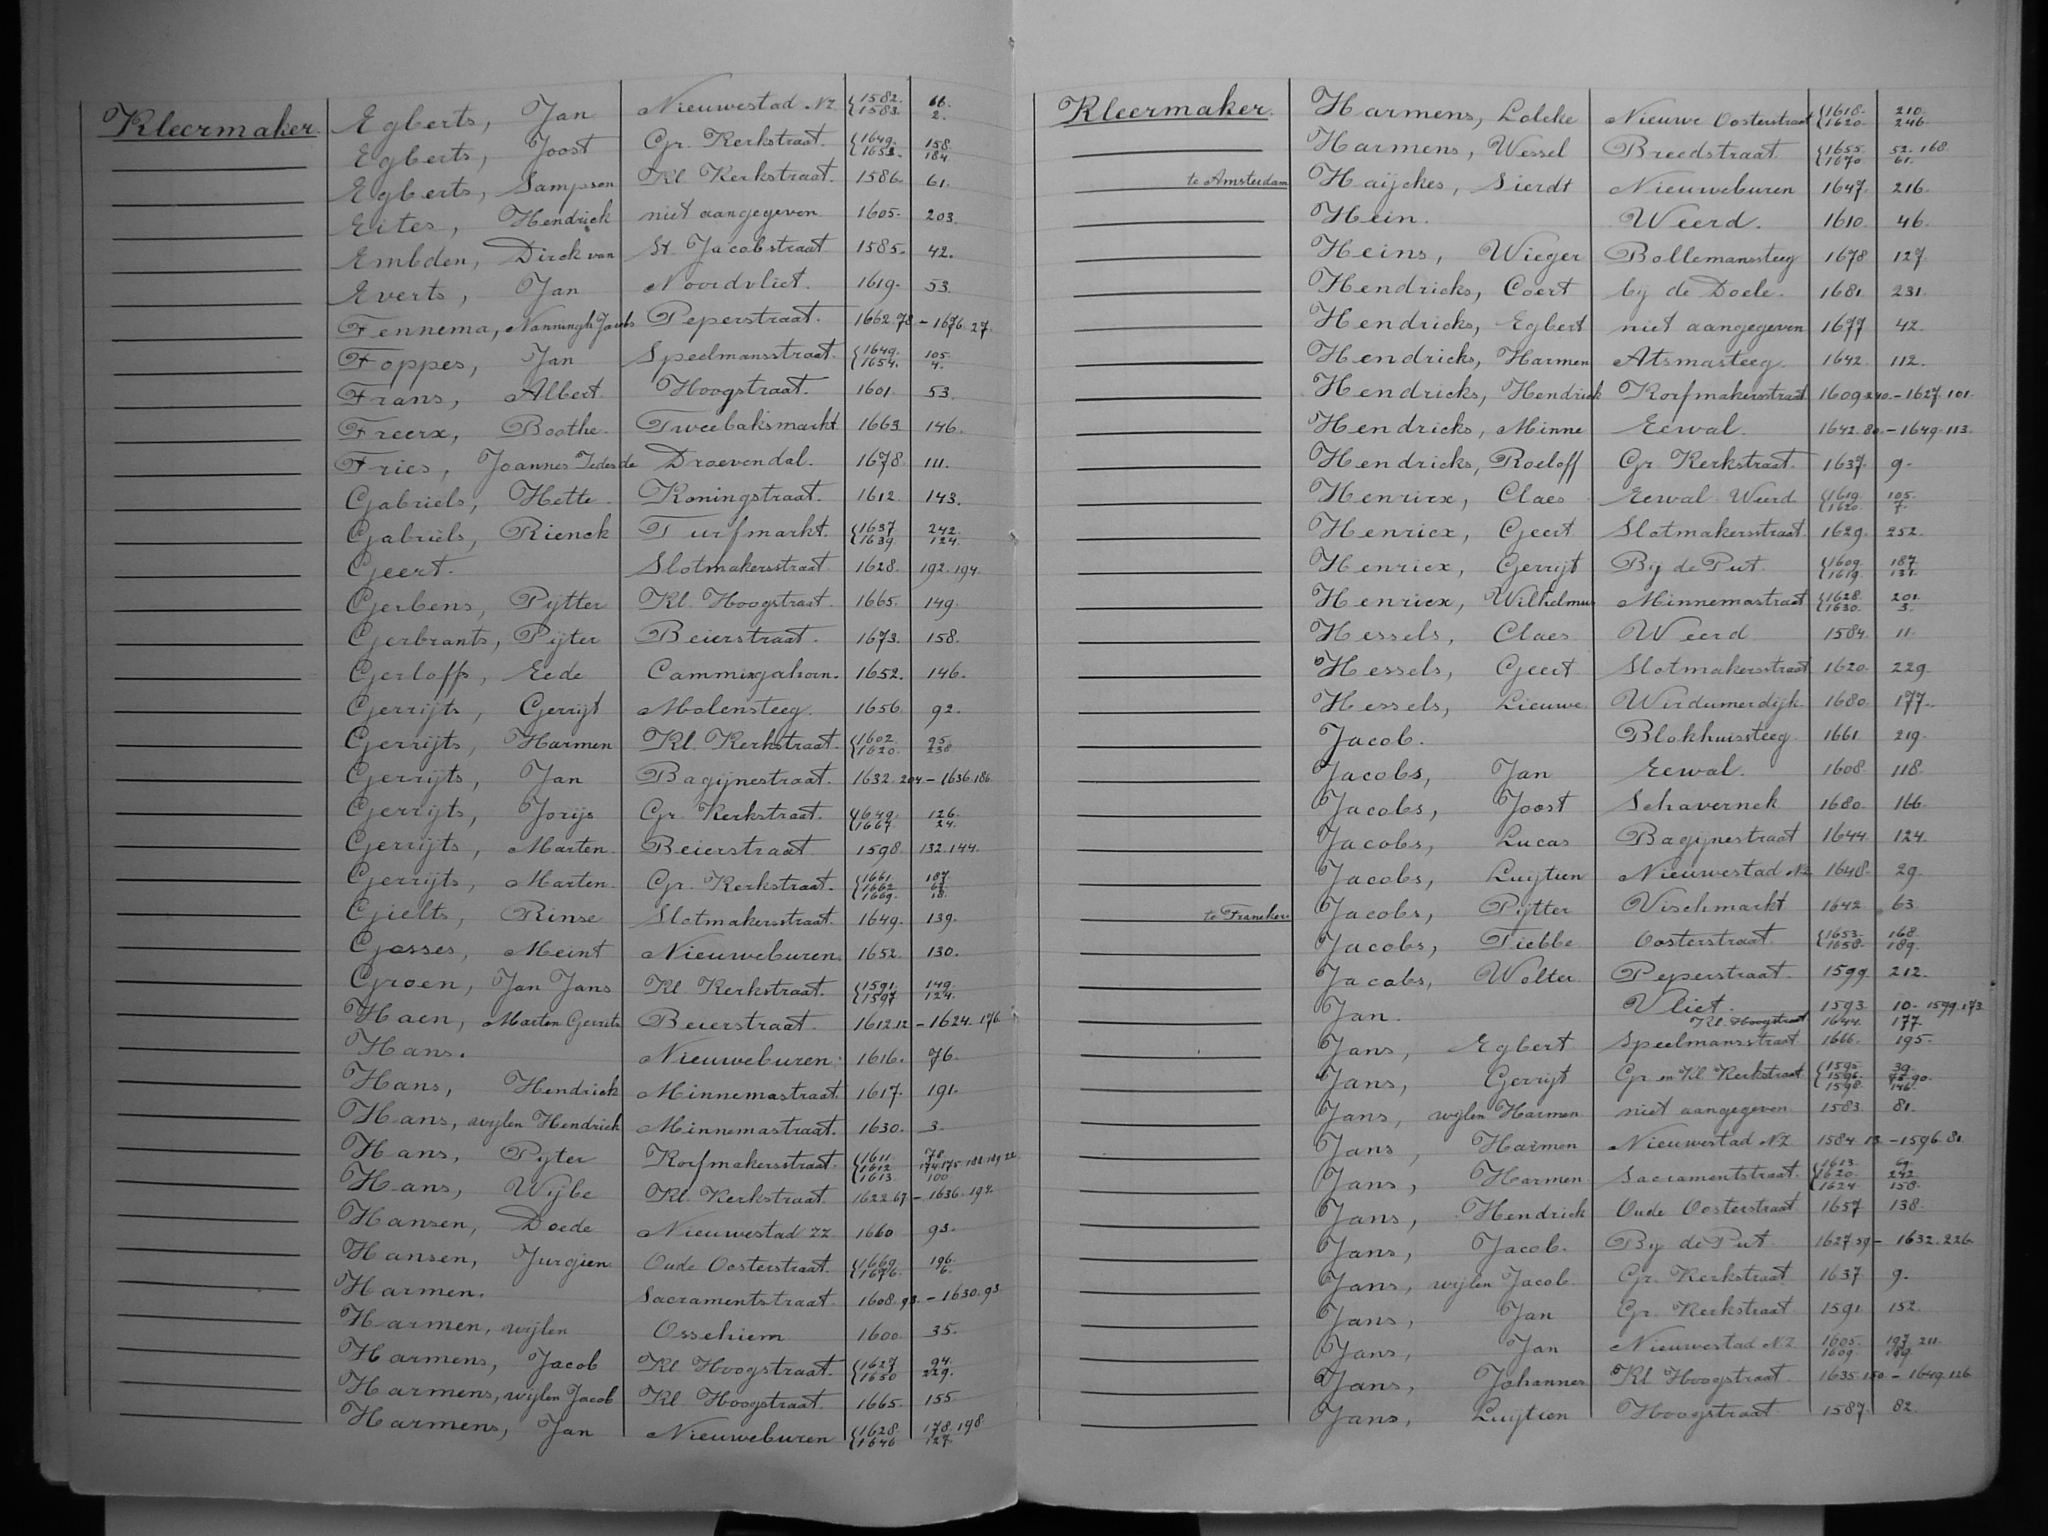 Kleermaker. Egberts, Jan Nieuwestad NZ {1582. 66.
{1583. 2.
Egberts, Joost Gr. Kerkstraat. {1649. 158.
{1653. 184.
Egberts, Sampson Kl. Kerkstraat. 1586. 61.
Eites, Hendrick niet aangegeven 1605. 203.
Embden, Dirck van St. Jacobstraat 1585. 42.
Everts, Jan Noordvliet. 1619. 53.
Fennema, Nanningh Jacobs Peperstraat. 1662.78. - 1676.27.
Foppes, Jan Speelmansstraat. {1649. 105.
{1654. 4.
Frans, Albert. Hoogstraat. 1601. 53.
Freerx, Boothe. Tweebaksmarkt 1663 146.
Fries, Joannes Tedes de Droevendal. 1678. 111.
Gabriels, Hette. Koningstraat. 1612. 143.
Gabriels, Rienck Turfmarkt. {1637 242.
{1639 124.
Geert. Slotmakersstraat 1628. 192.194.
Gerbens, Pijtter Kl. Hoogstraat. 1665. 149.
Gerbrants, Pijter Beierstraat. 1673. 158.
Gerloffs, Eede Cammingahorn. 1652. 146.
Gerrijts, Gerrijt Molensteeg. 1656. 92.
Gerrijts, Harmen Kl. Kerkstraat. {1602. 95.
{1620. 238
Gerrijts, Jan Bagijnestraat. 1632.204 - 1636.186.
Gerrijts, Jorijs Gr. Kerkstraat. {1649. 126.
{1667. 24.
Gerrijts, Marten. Beierstraat 1598. 132.144.
Gerrijts, Marten. Gr. Kerkstraat. {1661. 187.
{1662 67.
{1669. 18.
Gielts, Rinse Slotmakersstraat. 1649. 139.
Gosses, Meint Nieuweburen. 1652. 130.
Groen, Jan Jans Kl. Kerkstraat. {1591. 149.
{1597 124.
Haen, Marten Gerrits Beierstraat. 1612.12 - 1624.176.
Hans. Nieuweburen. 1616. 76.
Hans, Hendrick Minnemastraat. 1617. 191.
Hans, wijlen Hendrick Minnemastraat. 1630. 3.
Hans, Pijter Korfmakersstraat. {1611. 78.
{1612 174.175.188.189.22
{1613. 100
Hans, Wijbe Kl. Kerkstraat. 1622.67 - 1636.194.
Hansen, Doede Nieuwestad ZZ 1660 93.
Hansen, Jurgien Oude Oosterstraat. {1669. 196.
{1676. 6.
Harmen. Sacramentstraat. 1608.93. - 1630.93.
Harmen, wijlen Ossekiem 1600 35.
Harmens, Jacob Kl. Hoogstraat. {1627 94.
{1650 229.
Harmens, wijlen Jacob Kl. Hoogstraat. 1665. 155.
Harmens, Jan Nieuweburen {1628. 178.198
{1646 127.
Kleermaker. Harmens, Lolcke Nieuwe Oosterstraat {1618. 210.
{1620. 246.
Harmens, Wessel Breedstraat. {1655. 52.168.
{1670. 61.
te Amsterdam Haijckes, Sierdt Nieuweburen 1647. 216.
Hein. Weerd. 1610 46.
Heins, Wieger Bollemanssteeg 1678 127.
Hendricks, Coert bij de Doele. 1681. 231.
Hendricks, Egbert niet aangegeven 1677 42.
Hendricks, Harmen Atsmasteeg. 1642. 112.
Hendricks, Hendrick Korfmakersstraat 1609.210. - 1627.101.
Hendricks, Minne Eewal. 1642.80. - 1649.113.
Hendricks, Roeloff Gr. Kerkstraat. 1637. 9.
Henricx, Claes Eewal. Weerd. {1619. 105.
{1620. 7.
Henricx, Geert Slotmakersstraat. 1629. 252.
Henricx, Gerrijt Bij de Put. {1609. 187.
{1619. 131.
Henricx, Wilhelmus Minnemastraat {1628. 201.
{1630. 3.
Hessels, Claes Weerd 1584. 11.
Hessels, Geert Slotmakersstraat 1620. 229
Hessels, Lieuwe Wirdumerdijk. 1680. 177.
Jacob. Blokhuissteeg. 1661. 219.
Jacobs, Jan Eewal. 1608. 118.
Jacobs, Joost Schavernek 1680. 166.
Jacobs, Lucas Bagijnestraat 1644. 124.
Jacobs, Luijtien Nieuwestad NZ 1648. 29.
te Franeker. Jacobs, Pijtter Vischmarkt 1642 63.
Jacobs, Tiebbe Oosterstraat. {1653. 168
{1658. 189.
Jacobs, Wolter Peperstraat. 1599. 212.
Jan. Vliet. 1593. 10 - 1599.173.
Kl. Hoogstraat 1644. 177
Jans, Egbert Speelmansstraat 1666. 195.
Jans, Gerrijt Gr. en Kl. Kerkstraat {1595. 39.
{1596. 78.90.
{1598 146.
Jans, wijlen Harmen niet aangegeven 1583. 81.
Jans, Harmen Nieuwestad NZ 1584.13. - 1596.81.
Jans, Harmen Sacramentstraat. {1613. 69.
{1620. 242.
{1624. 158.
Jans, Hendrick Oude Oosterstraat 1657 138.
Jans, Jacob. Bij de Put 1627.39 - 1632.226.
Jans, wijlen Jacob. Gr. Kerkstraat. 1637 9.
Jans, Jan Gr. Kerkstraat. 1591 152.
Jans, Jan Nieuwestad NZ 1605. 197.211.
1609. 189.
Jans, Johannes Kl. Hoogstraat. 1635.150. - 1649.126.
Jans, Luijtien Hoogstraat 1587. 82.